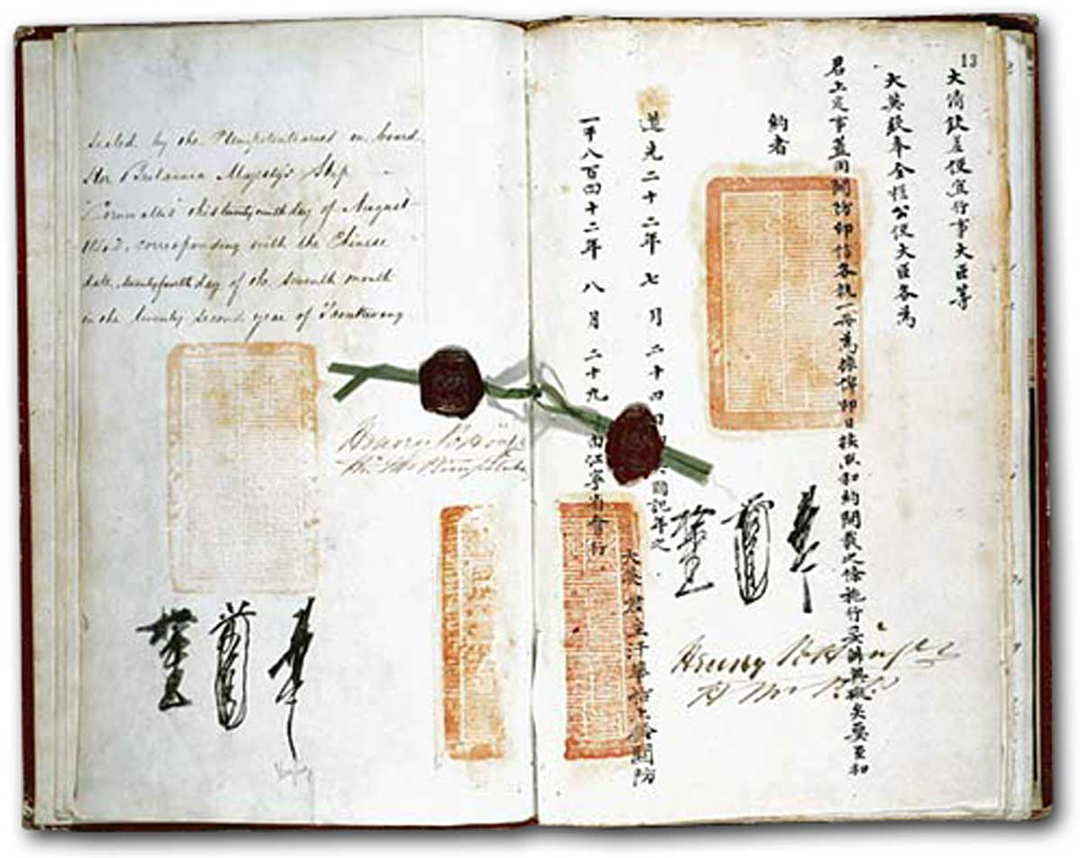 Sealed by the Plenipotentiaries on board
Her Britannic Majesty's Ship
Cornwallis this twenty ninth day of August
1842, corresponding with the Chinese
date, twenty fourth day of the seventh month
in the twenty second year of Taoukwang
Henry Pottinger
13
大清欽差便宜行事大臣等
大英欽奉全權公使大臣各為
君上定事蓋用關防印信各執一冊為據俾即日按照和約開載之條施行妥辦無礙矣要至和
約者
道光二十二年七月二十四日 國記年之
一千八百四十二年八月二十九 由江寧省會行
大英君主汗華船上鈐關防
Henry Pottinger